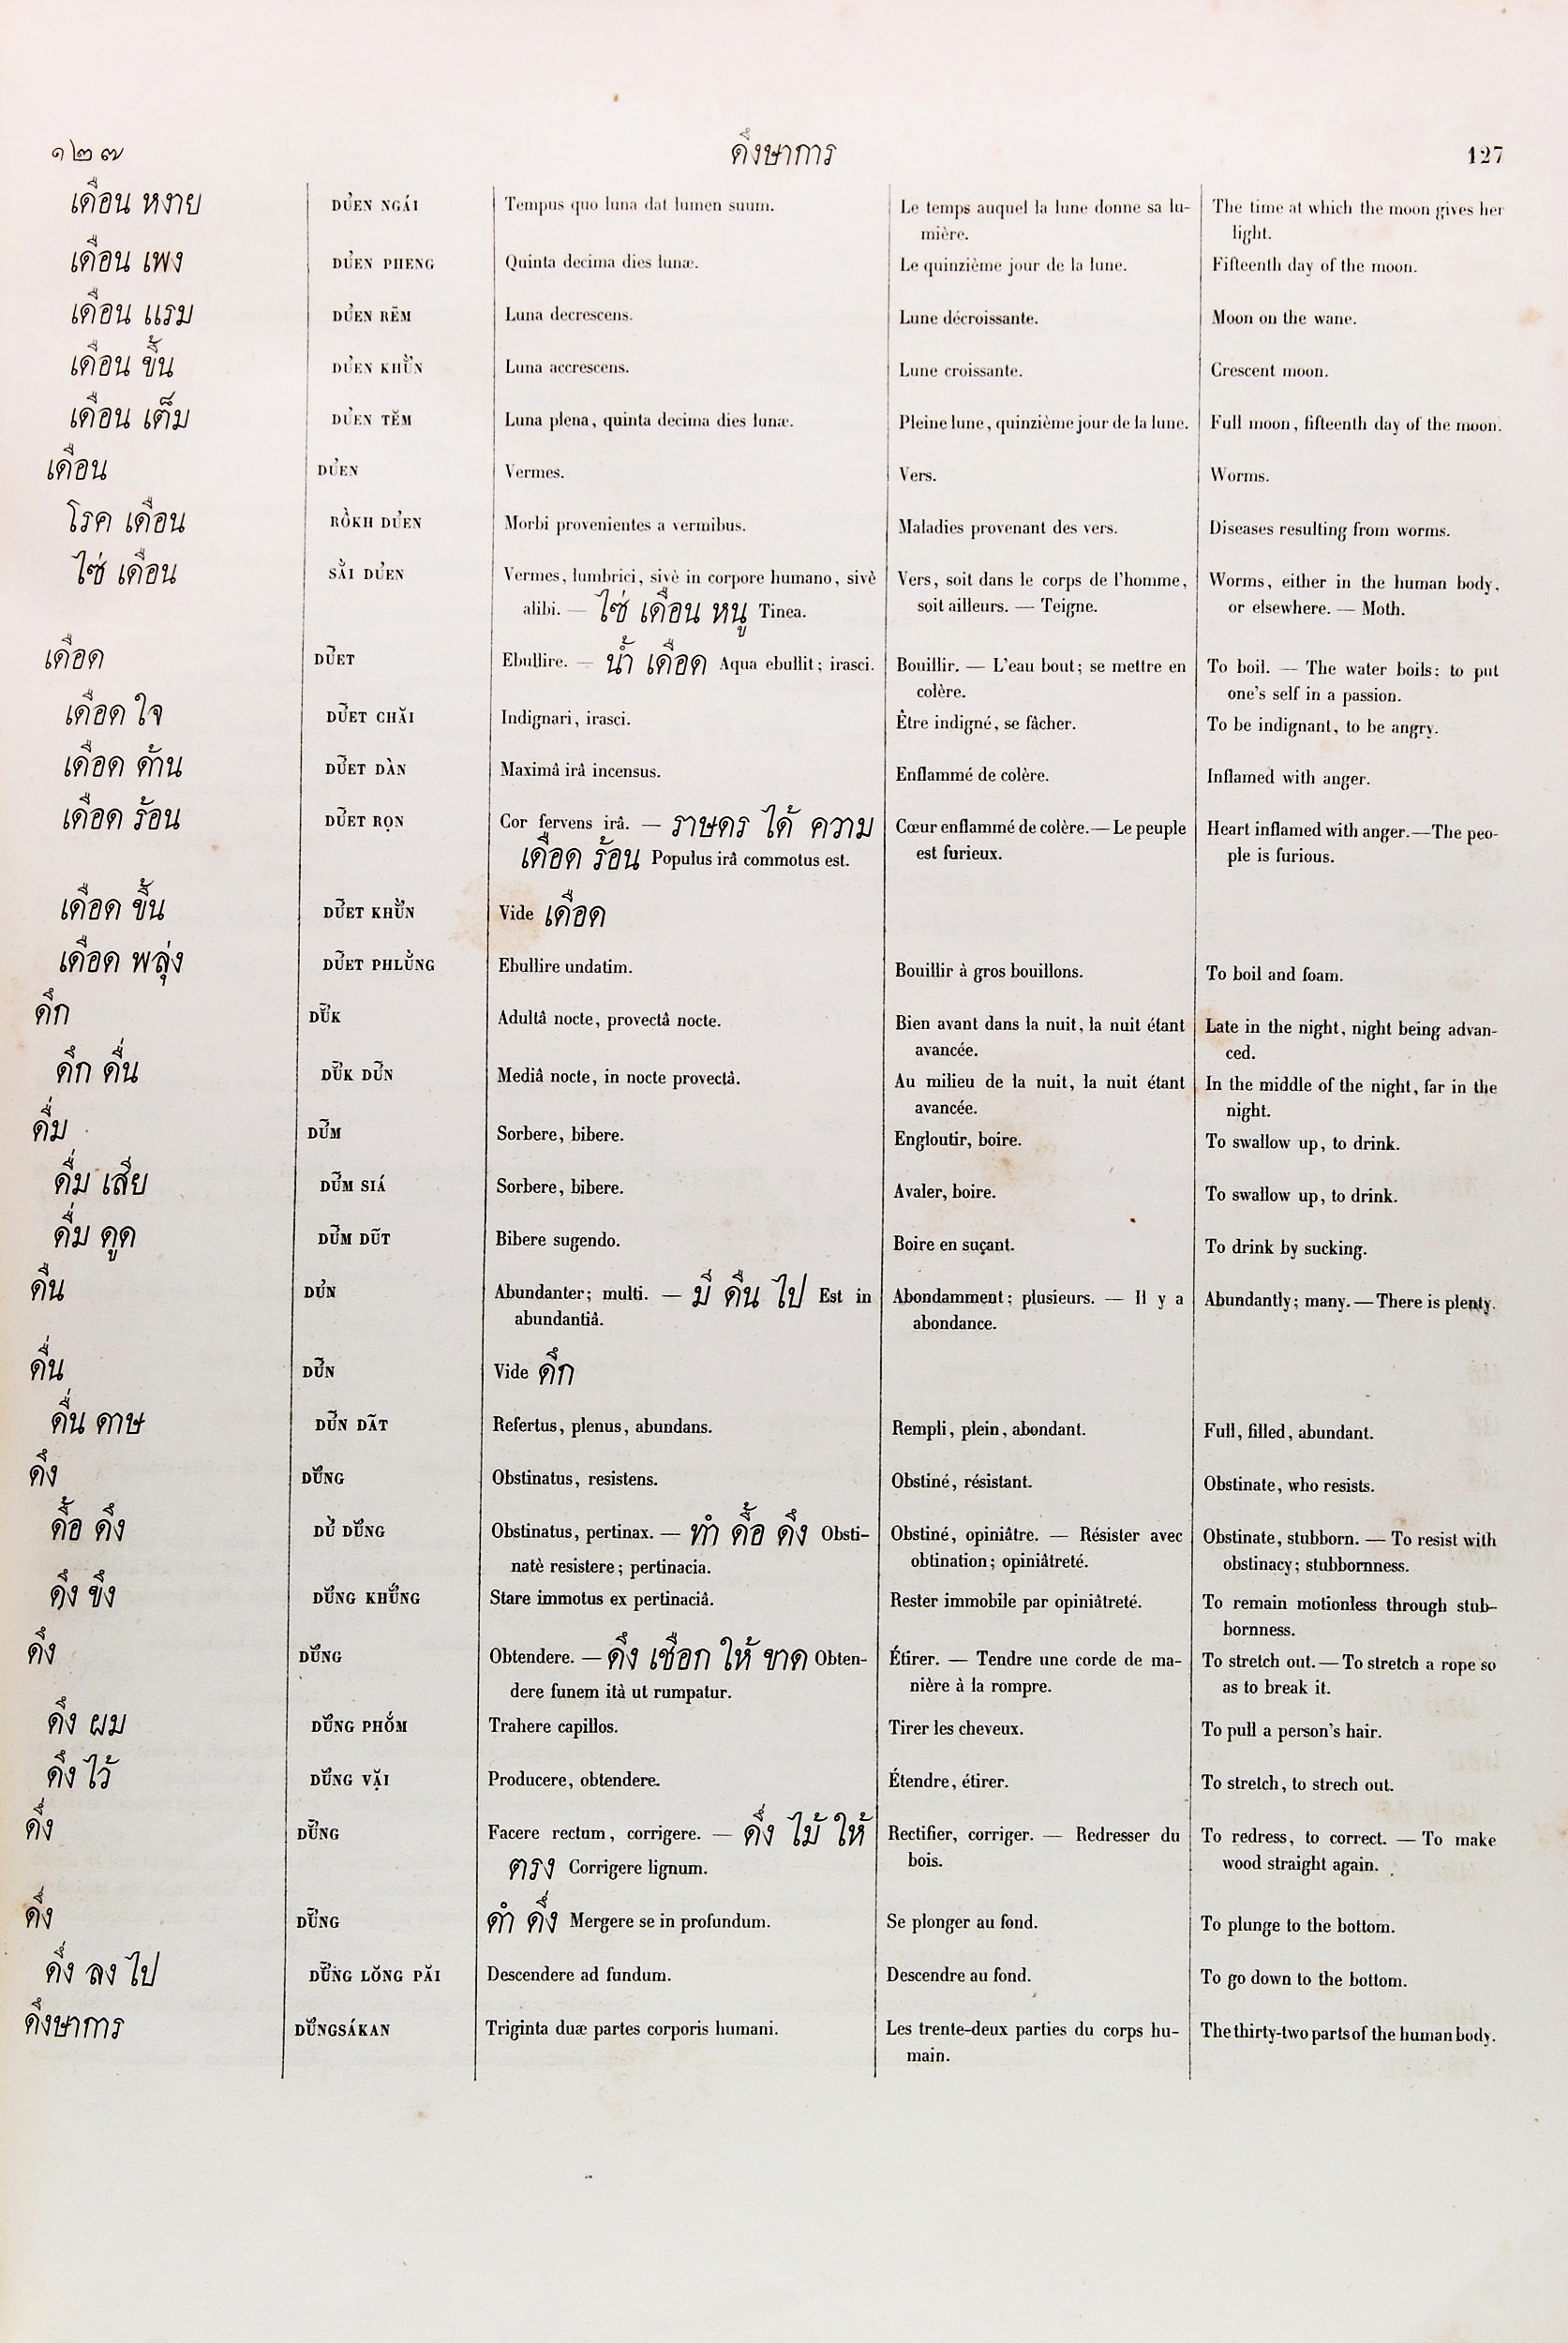 ๑๒๗ ดึงษาการ 127
เดือน หงาย DU'EN NGÁI Tempus quo luna dat lumen suum. Le temps auquel la lune donne sa lu- The time at which the moon gives her
mière. light.
เดือน เพง DU'EN PHENG Quinta decima dies lunæ. Le quinzième jour de la lune. Fifteenth day of the moon.
เดือน แรม DU'EN RẼM Luna decrescens. Lune décroissante. Moon on the wane.
เดือน ขึ้น DU'EN KHŬ'N Luna accrescens. Lune croissante. Crescent moon.
เดือน เต็ม DU'EN TĔM Luna plena, quinta decima dies lunæ. Pleine lune, quinzième jour de la lune. Full moon, fifteenth day of the moon.
เดือน DU'EN Vermes. Vers. Worms.
โรค เดือน RÒKH DU'EN Morbi provenientes a vermibus. Maladies provenant des vers. Diseases resulting from worms.
ไซ่ เดือน SĂI DU'EN Vermes, lumbrici, sivè in corpore humano, sivè Vers, soit dans le corps de l'homme, Worms, either in the human body,
alibi. — ไซ่ เดือน หนู Tinea. soit ailleurs. — Teigne. or elsewhere. — Moth.
เดือด DŨ'ET Ebullire. — น้ำ เดือด Aqua ebullit; irasci. Bouillir. — L'eau bout; se mettre en To boil. — The water boils; to put
colère. one's self in a passion.
เดือด ใจ DŨ'ET CHĂI Indignari, irasci. Être indigné, se fâcher. To be indignant, to be angry.
เดือด ด้าน DŨ'ET DÀN Maximâ irâ incensus. Enflammé de colère. Inflamed with anger.
เดือด ร้อน DŨ'ET RỌN Cor fervens irâ. — ราษดร ได้ ความ Cœur enflammé de colère. — Le peuple Heart inflamed with anger. — The peo-
เดือด ร้อน Populus irâ commotus est. est furieux. ple is furious.
เดือด ขึ้น DŨ'ET KHŬ'N Vide เดือด
เดือด พลุ่ง DŨ'ET PHLŬNG Ebullire undatim. Bouillir à gros bouillons. To boil and foam.
ดึก DŬ'K Adultâ nocte, provectâ nocte. Bien avant dans la nuit, la nuit étant Late in the night, night being advan-
avancée. ced.
ดึก ดื่น DŬ'K DŨ'N Mediâ nocte, in nocte provectâ. Au milieu de la nuit, la nuit étant In the middle of the night, far in the
avancée. night.
ดื่ม DŨ'M Sorbere, bibere. Engloutir, boire. To swallow up, to drink.
ดื่ม เสีย DŨ'M SIÁ Sorbere, bibere. Avaler, boire. To swallow up, to drink.
ดื่ม ดูด DŨ'M DŨT Bibere sugendo. Boire en suçant. To drink by sucking.
ดืน DU'N Abundanter; multi. — มี ดืน ไป Est in Abondamment; plusieurs. — Il y a Abundantly; many. — There is plenty.
abundantiâ. abondance.
ดื่น DŨ'N Vide ดึก
ดื่น ดาษ DŨ'N DÃT Refertus, plenus, abundans. Rempli, plein, abondant. Full, filled, abundant.
ดึง DŬ'NG Obstinatus, resistens. Obstiné, résistant. Obstinate, who resists.
ดื้อ ดึง DỪ DŬ'NG Obstinatus, pertinax. — ทำ ดื้อ ดึง Obsti- Obstiné, opiniâtre. — Résister avec Obstinate, stubborn. — To resist with
natè resistere; pertinacia. obtination; opiniâtreté. obstinacy; stubbornness.
ดึง ขึง DŬ'NG KHŬ'NG Stare immotus ex pertinaciâ. Rester immobile par opiniâtreté. To remain motionless through stub-
bornness.
ดึง DŬ'NG Obtendere. — ดึง เชือก ให้ ขาด Obten- Étirer. — Tendre une corde de ma- To stretch out. — To stretch a rope so
dere funem ità ut rumpatur. nière à la rompre. as to break it.
ดึง ผม DŬ'NG PHŎM Trahere capillos. Tirer les cheveux. To pull a person's hair.
ดึง ไว้ DŬ'NG VẶI Producere, obtendere. Étendre, étirer. To stretch, to strech out.
ดึ่ง DŬ'NG Facere rectum, corrigere. — ดึ่ง ไม้ ให้ Rectifier, corriger. — Redresser du To redress, to correct. — To make
ตรง Corrigere lignum. bois. wood straight again.
ดึ่ง DŬ'NG ดำ ดึ่ง Mergere se in profundum. Se plonger au fond. To plunge to the bottom.
ดึ่ง ลง ไป DŬ'NG LŎNG PĂI Descendere ad fundum. Descendre au fond. To go down to the bottom.
ดึงษาการ DŬ'NGSÁKAN Triginta duæ partes corporis humani. Les trente-deux parties du corps hu- The thirty-two parts of the human body.
main.